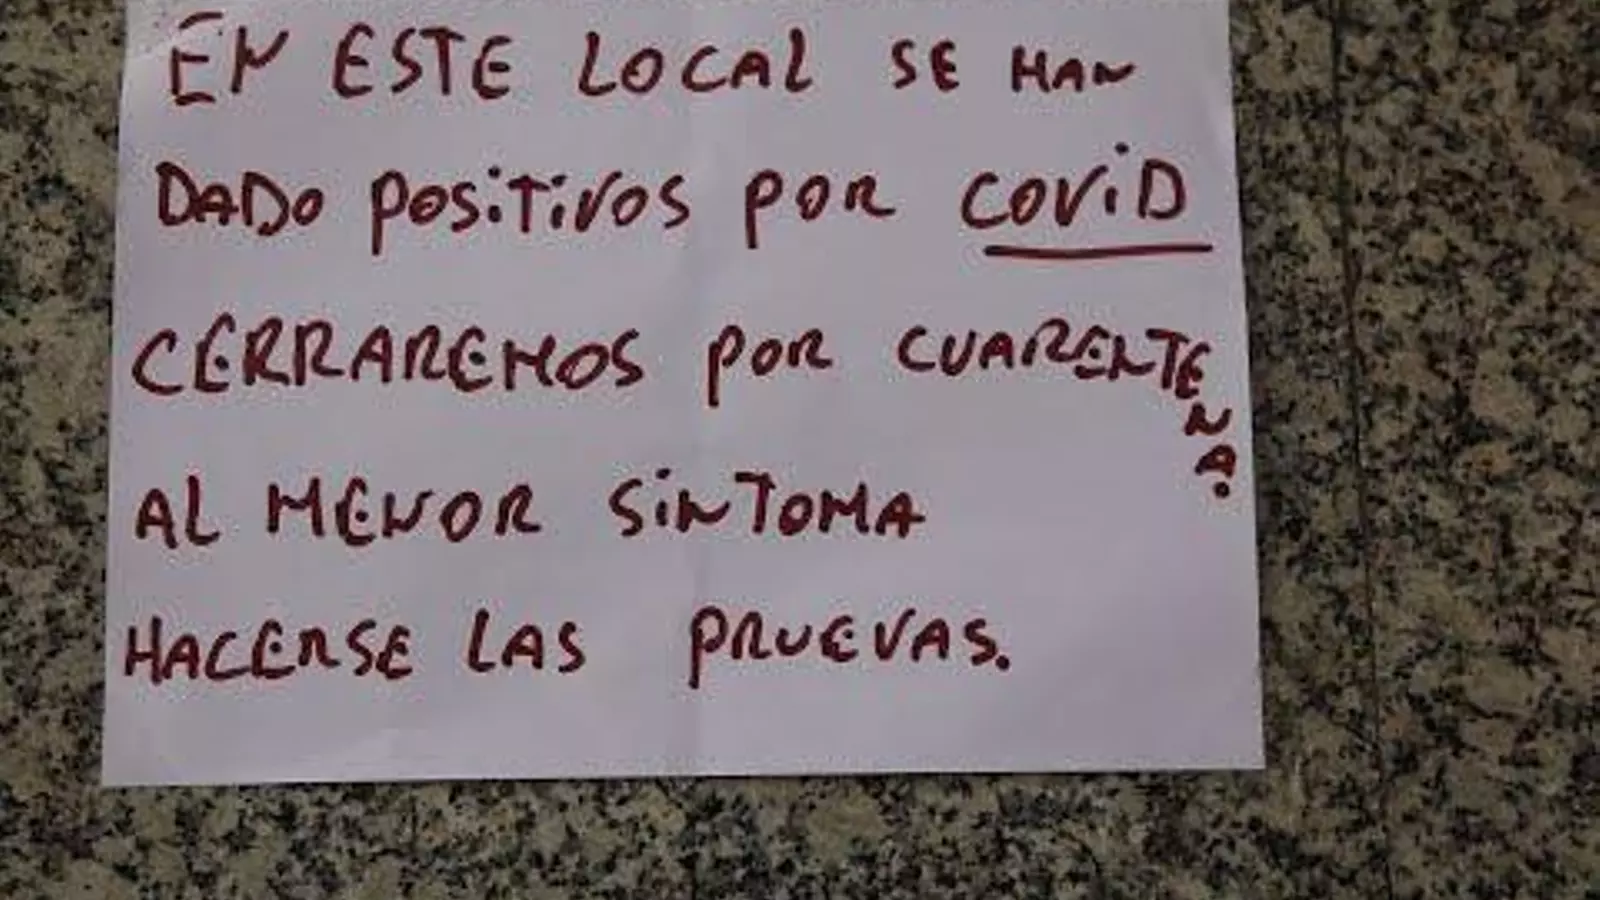 EN ESTE LOCAL SE HAN
DADO POSiTiVOS POR COViD
CERRAREMOS POR CUARENTENA.
AL MENOR SiNTOMA
HACERSE LAS PRUEVAS.